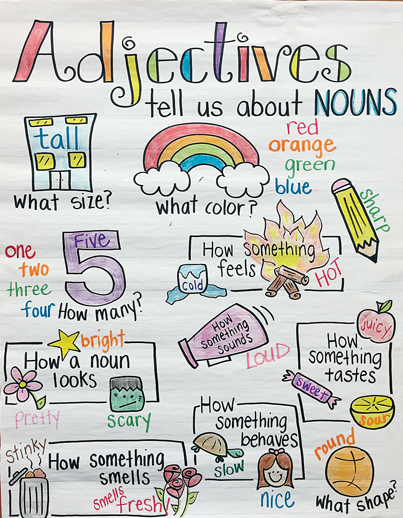 Adjectives
tell us about NOUNS
tall
What size?
What color?
red
orange
green
blue
sharp
one
two
three
four
Five
How many?
How something
feels
cold
HOT
bright
How a noun
looks
pretty
scary
How
something
sounds
LOUD
juicy
How
something
tastes
sweet
sour
Stinky
How something
smells
smells
fresh!
How
something
behaves
slow
nice
round
What shape?